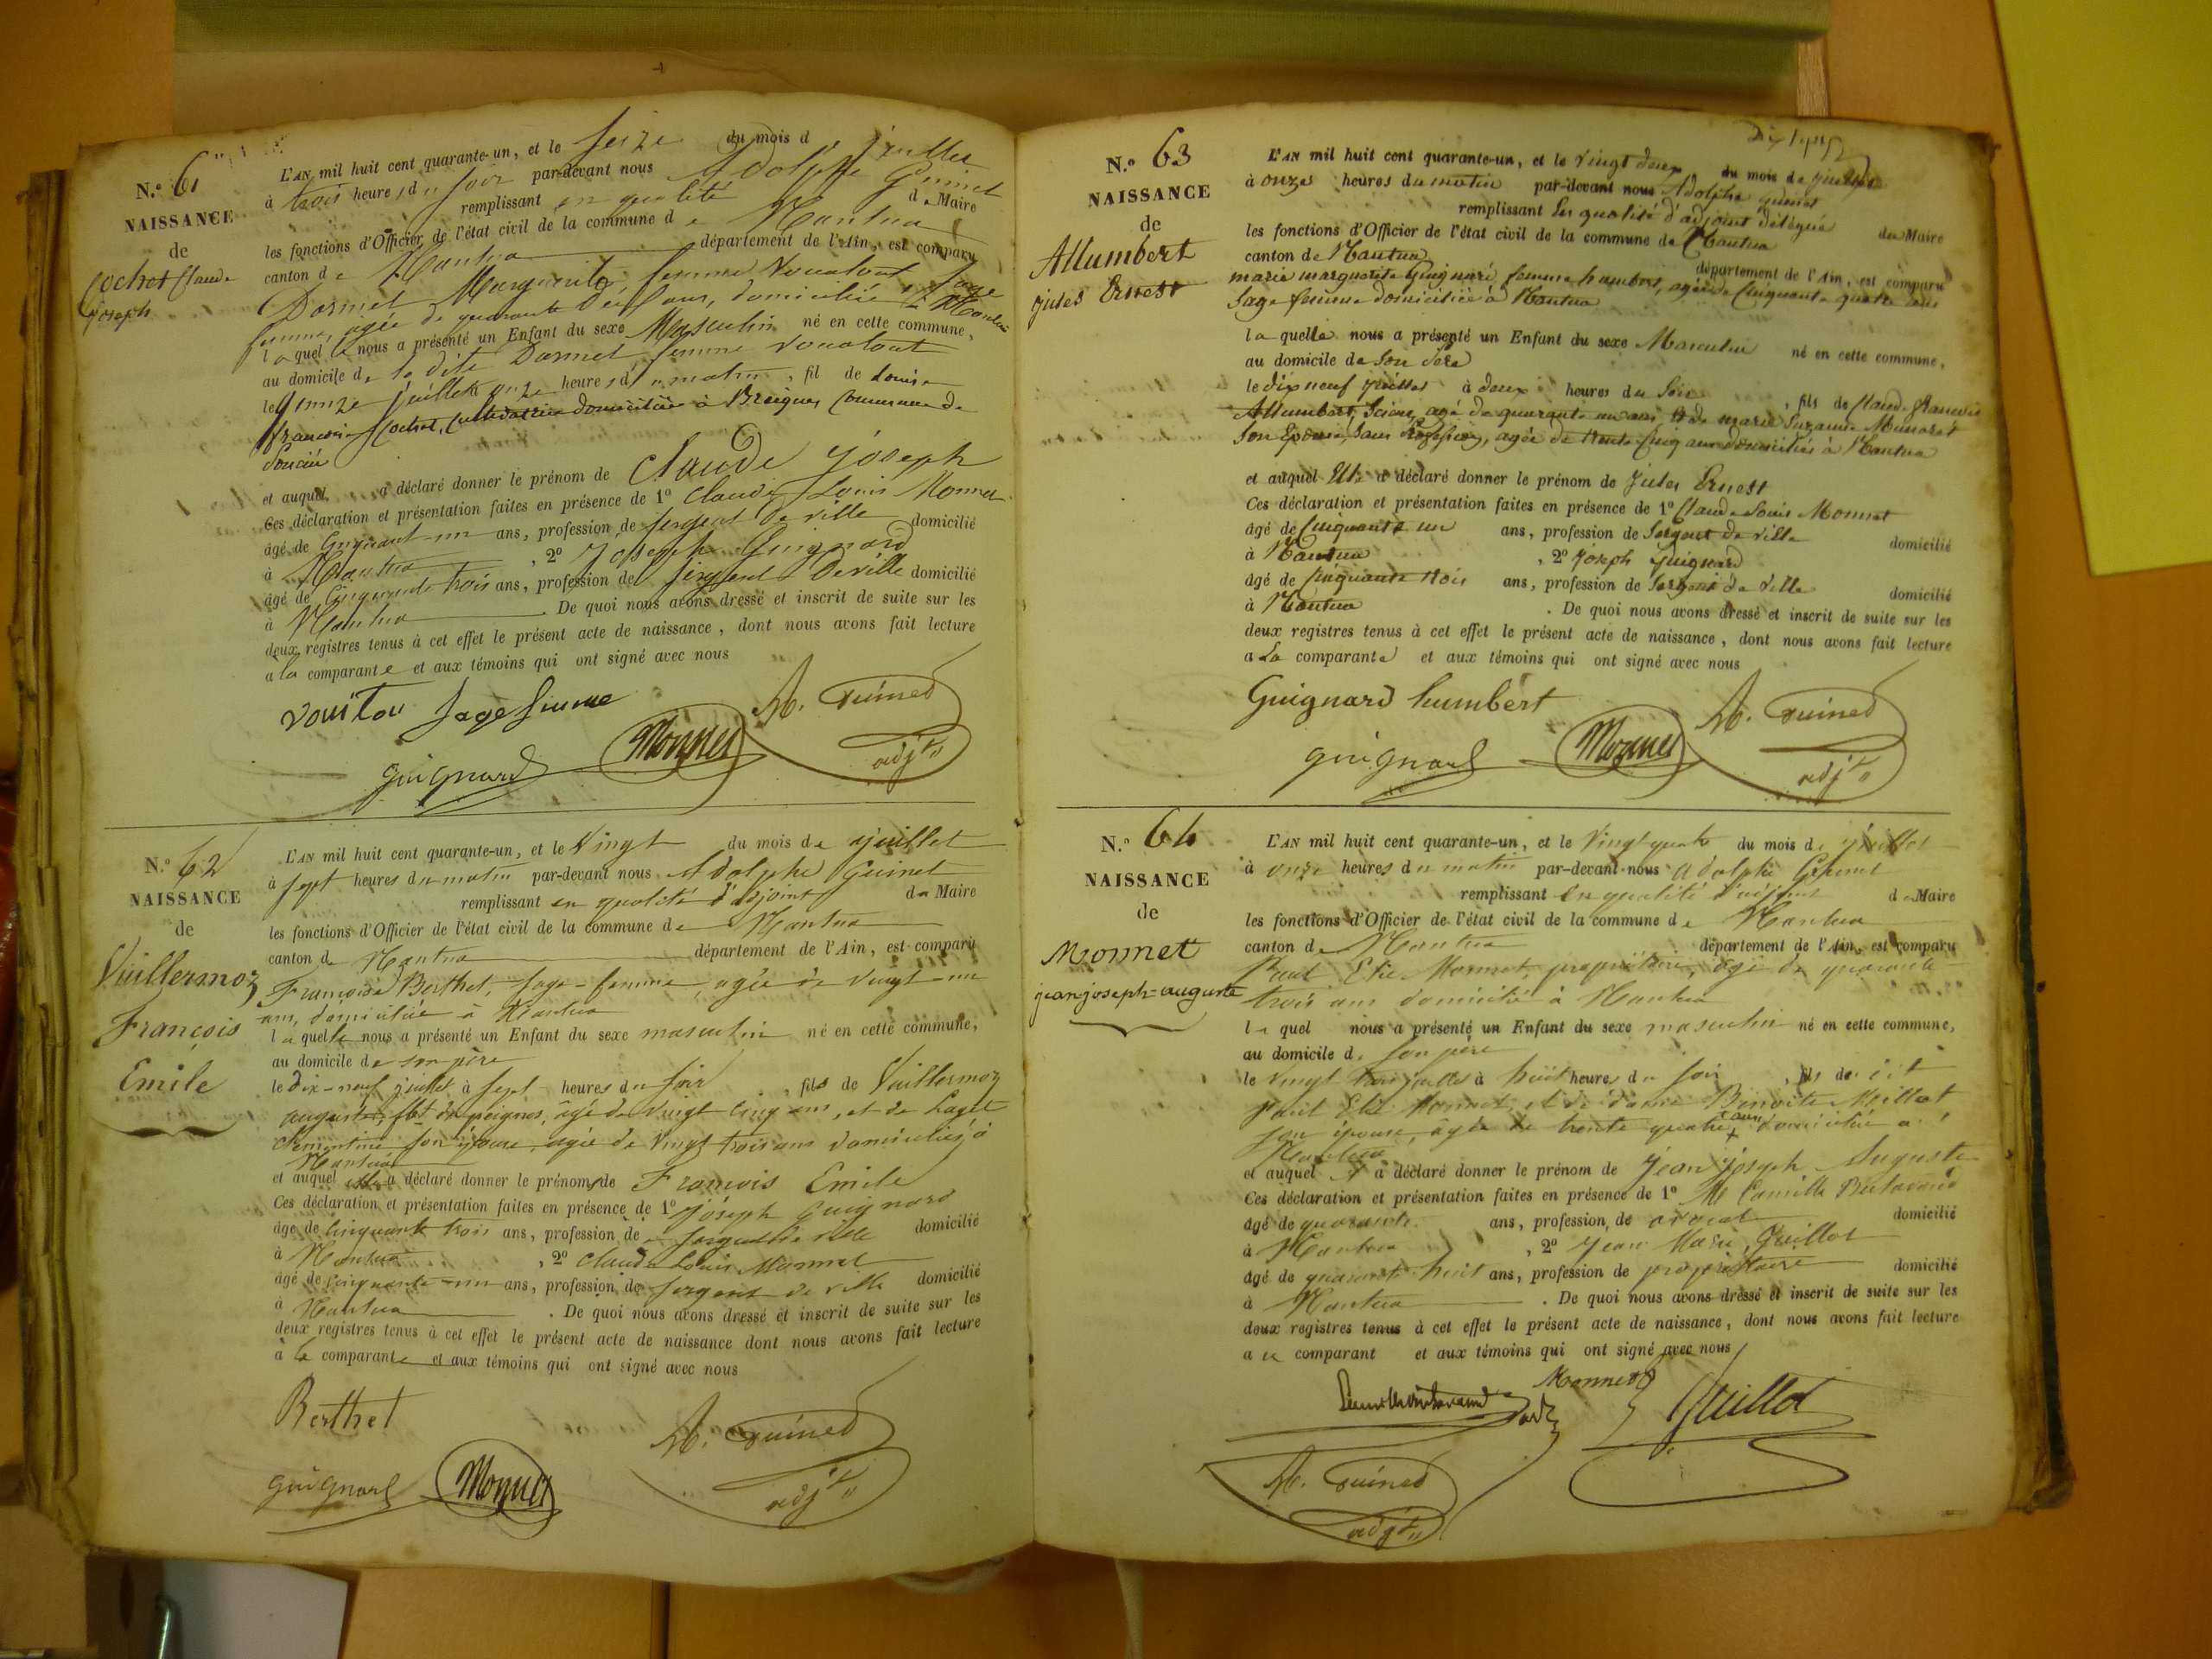 N.º 61
NAISSANCE
de
Cochet Claude
Joseph
L'AN mil huit cent quarante-un, et le seize du mois d juillet
à trois heures du soir par-devant nous Adolphe Guinet
remplissant en qualité de Maire
les fonctions d'Officier de l'état civil de la commune de Nantua
canton de Nantua département de l'Ain, est comparu
Dormet Marguerite femme sage
femme, agée de quarante ans, domiciliée à Nantua
laquelle nous a présenté un Enfant du sexe Masculin né en cette commune,
au domicile de la dite Dormet femme
le quinze juillet à onze heures du matin, fil de Louise
françoise Cochet, cultivatrice domiciliée à Commune de
et auquel a déclaré donner le prénom de Claude Joseph
Ces déclaration et présentation faites en présence de 1º Claude Louis Monnet
âgé de Cinquant-un ans, profession de sergent de ville domicilié
à Nantua, 2º Joseph Guignard
âgé de Cinquante trois ans, profession de sergent de ville domicilié
à Nantua. De quoi nous avons dressé et inscrit de suite sur les
deux registres tenus à cet effet le présent acte de naissance, dont nous avons fait lecture
a la comparante et aux témoins qui ont signé avec nous
sage femme
A. Guinet
Monnet
adjt
guignard
N.º 62
NAISSANCE
de
Vuillermoz
François
Emile
L'AN mil huit cent quarante-un, et le Vingt du mois de juillet
à sept heures du matin par-devant nous Adolphe Guinet
remplissant en qualité d'adjoint du Maire
les fonctions d'Officier de l'état civil de la commune de Nantua
canton de Nantua département de l'Ain, est comparu
Françoise Berthet, sage-femme, agée de vingt-un
ans, domiciliée à Nantua
laquelle nous a présenté un Enfant du sexe masculin né en cette commune,
au domicile de son père
le dix-neuf juillet à sept heures du soir, fils de Vuillermoz
auguste, fbt de peignes, âgé de vingt cinq ans, et de Laget
Clementine son épouse agée de vingt trois ans domiciliés à
Nantua
et auquel elle a déclaré donner le prénom de François Emile
Ces déclaration et présentation faites en présence de 1º joseph Guignard
âgé de Cinquante trois ans, profession de sergent de ville domicilié
à Nantua, 2º Claude Louis Monnet
âgé de cinquante-un ans, profession de sergent de ville domicilié
à Nantua. De quoi nous avons dressé et inscrit de suite sur les
deux registres tenus à cet effet le présent acte de naissance dont nous avons fait lecture
à la comparante et aux témoins qui ont signé avec nous
Berthet
A. Guinet
guignard
Monnet
adjt
N.º 63
NAISSANCE
de
Allumbert
jules Ernest
L'AN mil huit cent quarante-un, et le vingt deux du mois de juillet
à onze heures du matin par-devant nous Adolphe guinet
remplissant En qualité d'adjoint délégué du Maire
les fonctions d'Officier de l'état civil de la commune de Nantua
canton de Nantua département de l'Ain, est comparu
marie marguerite Guignard femme humbert, agée de Cinquante quatre ans
Sage femme domiciliée à Nantua
laquelle nous a présenté un Enfant du sexe Masculin né en cette commune,
au domicile de Son Père
le dix neuf juillet à deux heures du Soir, fils de Claude francois
Allumbert, Scieur, agé de quarante un ans Et de marie Suzanne Munaret
Son Epouse, Sans Profession, agée de trente Cinq ans domiciliés à Nantua
et auquel Elle a déclaré donner le prénom de Jules Ernest
Ces déclaration et présentation faites en présence de 1º Claude Louis Monnet
âgé de Cinquante un ans, profession de Sergent de ville domicilié
à Nantua, 2º Joseph Guignard
âgé de Cinquante trois ans, profession de Sergent de ville domicilié
à Nantua. De quoi nous avons dressé et inscrit de suite sur les
deux registres tenus à cet effet le présent acte de naissance, dont nous avons fait lecture
a La comparante et aux témoins qui ont signé avec nous
Guignard humbert
A. Guinet
guignard
Monnet
adjt
N.º 64
NAISSANCE
de
Monnet
jean joseph-auguste
L'AN mil huit cent quarante-un, et le Vingt quatre du mois de juillet
à onze heures du matin par-devant nous Adolphe Guinet
remplissant en qualité d'adjoint de Maire
les fonctions d'Officier de l'état civil de la commune de Nantua
canton de Nantua département de l'Ain, est comparu
Paul Elie Monnet, propriétaire, âgé de quarante
trois ans domicilié à Nantua
lequel nous a présenté un Enfant du sexe masculin né en cette commune,
au domicile de son père
le Vingt trois juillet à huit heures du soir, fils de dit
Paul Elie Monnet, et de dame Benoite Millet
son épouse, agée de trente quatre ans domiciliée à
Nantua
et auquel il a déclaré donner le prénom de Jean Joseph Auguste
Ces déclaration et présentation faites en présence de 1º Mr Camille
âgé de quarante ans, profession de avocat domicilié
à Nantua, 2º Jean Marie Guillot
âgé de quarante huit ans, profession de propriétaire domicilié
à Nantua. De quoi nous avons dressé et inscrit de suite sur les
deux registres tenus à cet effet le présent acte de naissance, dont nous avons fait lecture
a ce comparant et aux témoins qui ont signé avec nous
Monnet
Guillot
A. Guinet
adjt